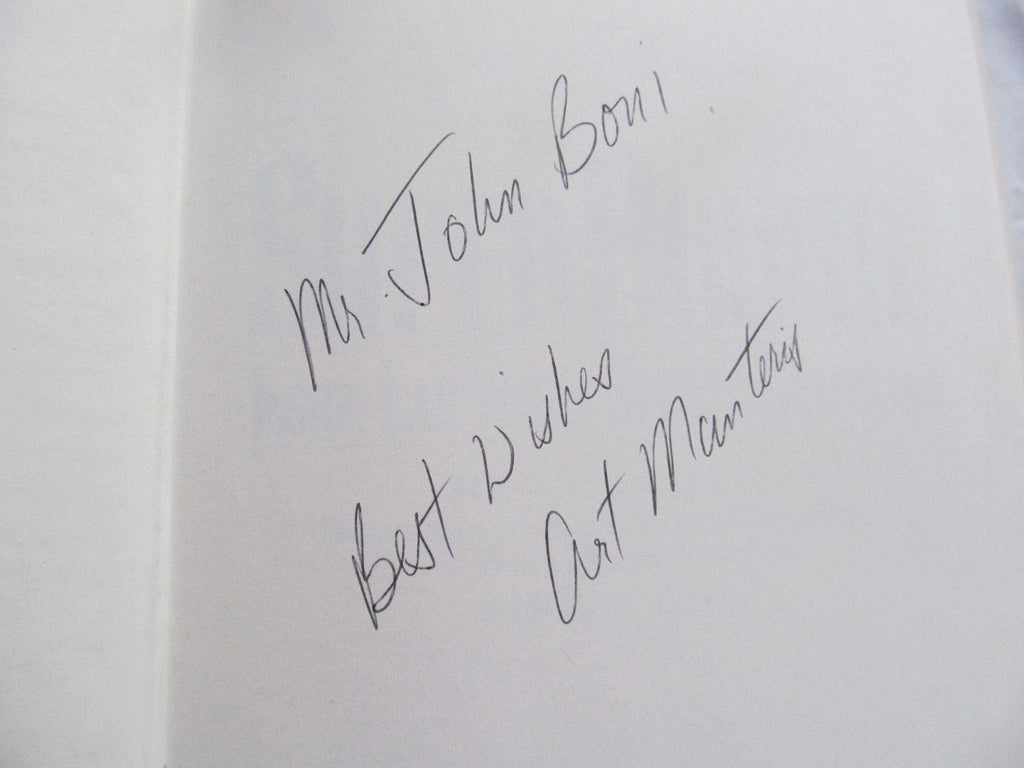 Mr. John Boni
Best Wishes
Art Manteris